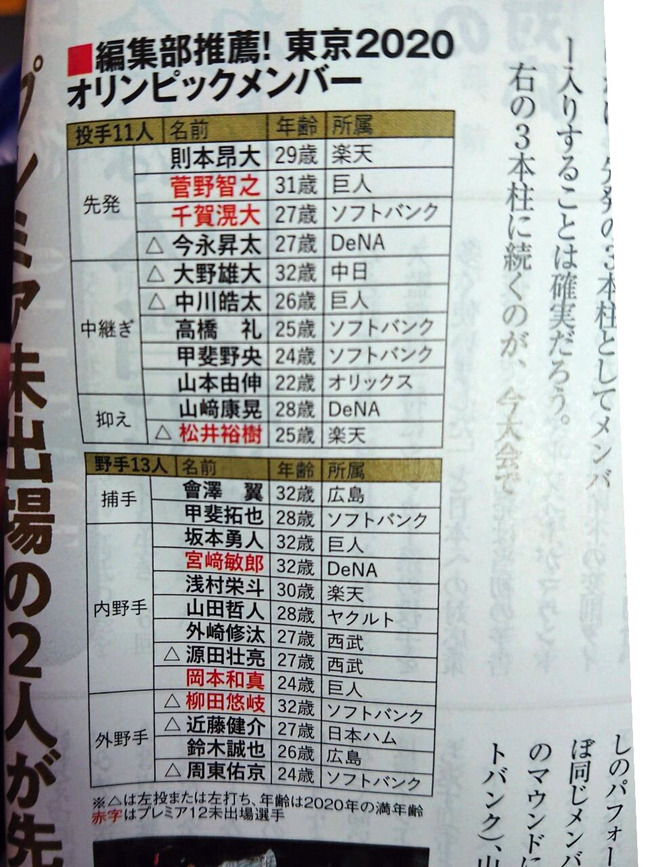 ■編集部推薦! 東京2020
オリンピックメンバー
投手11人 名前 年齢 所属
先発 則本昂大 29歳 楽天
菅野智之 31歳 巨人
千賀滉大 27歳 ソフトバンク
△ 今永昇太 27歳 DeNA
中継ぎ △ 大野雄大 32歳 中日
△ 中川皓太 26歳 巨人
高橋 礼 25歳 ソフトバンク
甲斐野央 24歳 ソフトバンク
山本由伸 22歳 オリックス
抑え 山﨑康晃 28歳 DeNA
△ 松井裕樹 25歳 楽天
野手13人 名前 年齢 所属
捕手 會澤 翼 32歳 広島
甲斐拓也 28歳 ソフトバンク
内野手 坂本勇人 32歳 巨人
宮﨑敏郎 32歳 DeNA
浅村栄斗 30歳 楽天
山田哲人 28歳 ヤクルト
外崎修汰 27歳 西武
△ 源田壮亮 27歳 西武
岡本和真 24歳 巨人
外野手 △ 柳田悠岐 32歳 ソフトバンク
△ 近藤健介 27歳 日本ハム
鈴木誠也 26歳 広島
△ 周東佑京 24歳 ソフトバンク
※△は左投または左打ち、年齢は2020年の満年齢
赤字はプレミア12未出場選手
先発の3本柱としてメンバ
ー入りすることは確実だろう。
右の3本柱に続くのが、今大会で
しのパフォー
ぼ同じメンバ
のマウンドに
トバンク)、山
プレミア未出場の2人が先